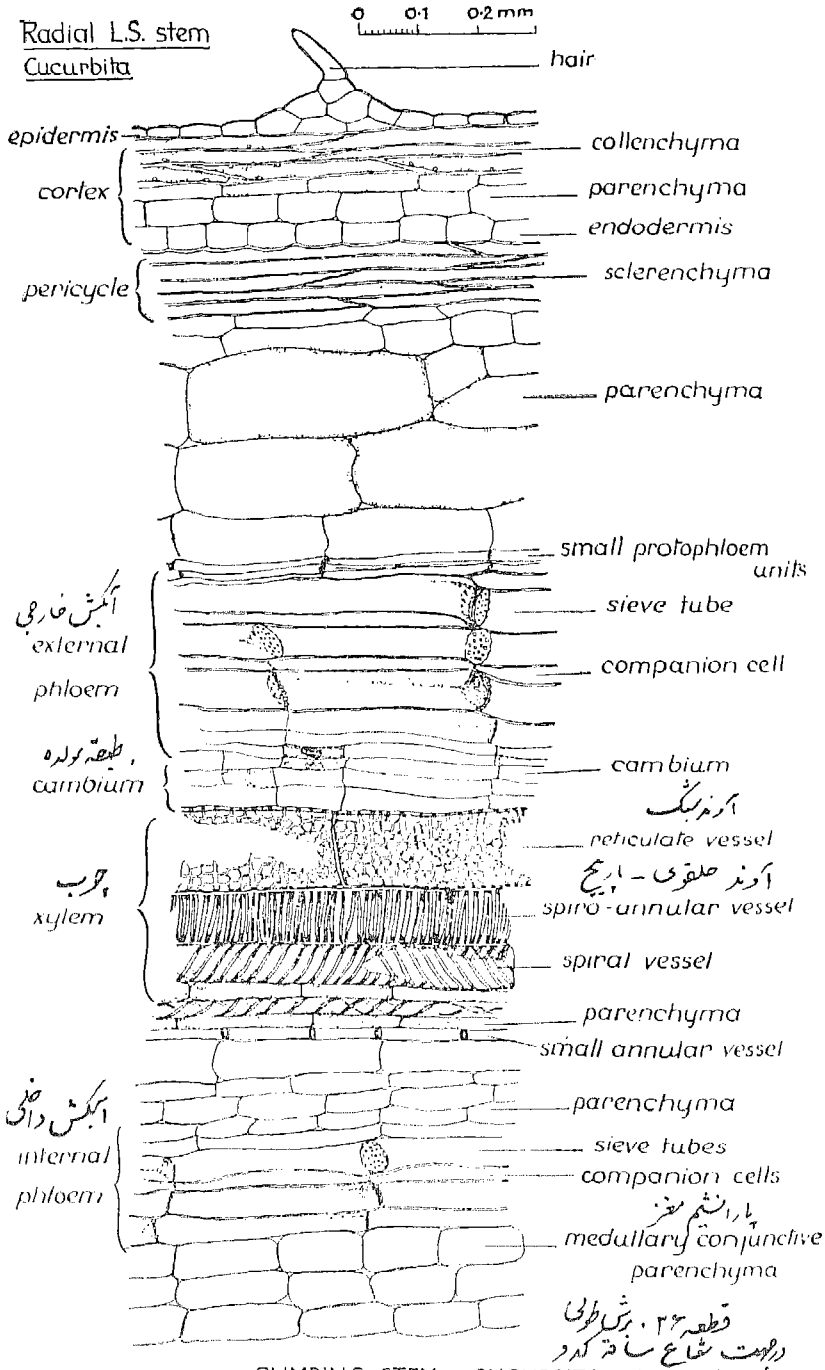 Radial L.S. stem
Cucurbita
0 0.1 0.2 mm
hair
epidermis
collenchyma
cortex
parenchyma
endodermis
pericycle
sclerenchyma
parenchyma
small protophloem
units
آبکش خارجی
external
phloem
sieve tube
companion cell
طبقه مولده
cambium
cambium
آوند مشبک
reticulate vessel
چوب
xylem
آوند حلقوی - مارپیچ
spiro-annular vessel
spiral vessel
parenchyma
small annular vessel
آبکش داخلی
internal
phloem
parenchyma
sieve tubes
companion cells
پارانشیم مغز
medullary conjunctive
parenchyma
قطعه ۲۶. برش طولی
درجهت شعاع ساقه کدو